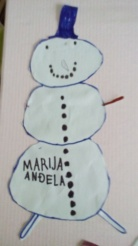 MARIJA
ANĐELA